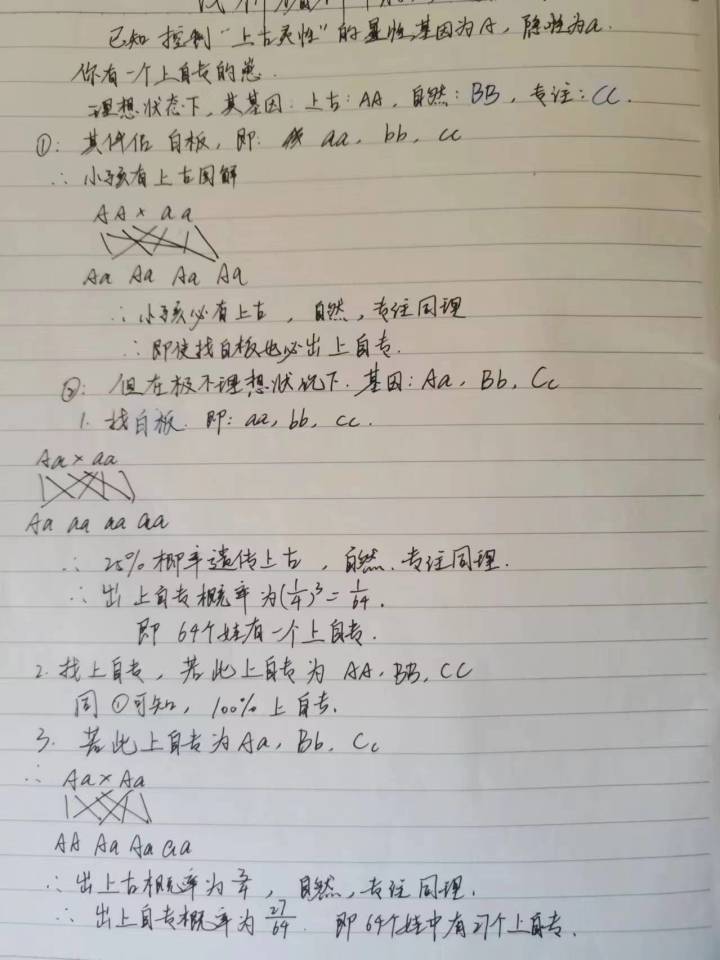 已知 控制“上古灵性”的显性基因为A，隐性为a.
你有一个上自专的崽.
理想状态下，其基因：上古：AA，自然：BB，专注：CC.
①：其伴侣 白板，即： aa，bb，cc
∴ 小孩有上古图解
AA × aa
Aa Aa Aa Aa
∴ 小孩必有上古，自然，专注同理
∴ 即使找白板也必出上自专.
②：但在极不理想状况下. 基因：Aa，Bb，Cc
1. 找白板. 即：aa，bb，cc.
Aa × aa
Aa aa aa aa
∴ 25%概率遗传上古，自然、专注同理.
∴ 出上自专概率为(1/4)³ = 1/64.
即 64个娃有一个上自专.
2. 找上自专，若此上自专为 AA，BB，CC
同①可知，100%上自专.
3. 若此上自专为Aa，Bb，Cc
∴ Aa × Aa
AA Aa Aa aa
∴ 出上古概率为3/4，自然，专注同理.
∴ 出上自专概率为27/64. 即64个娃中有27个上自专.